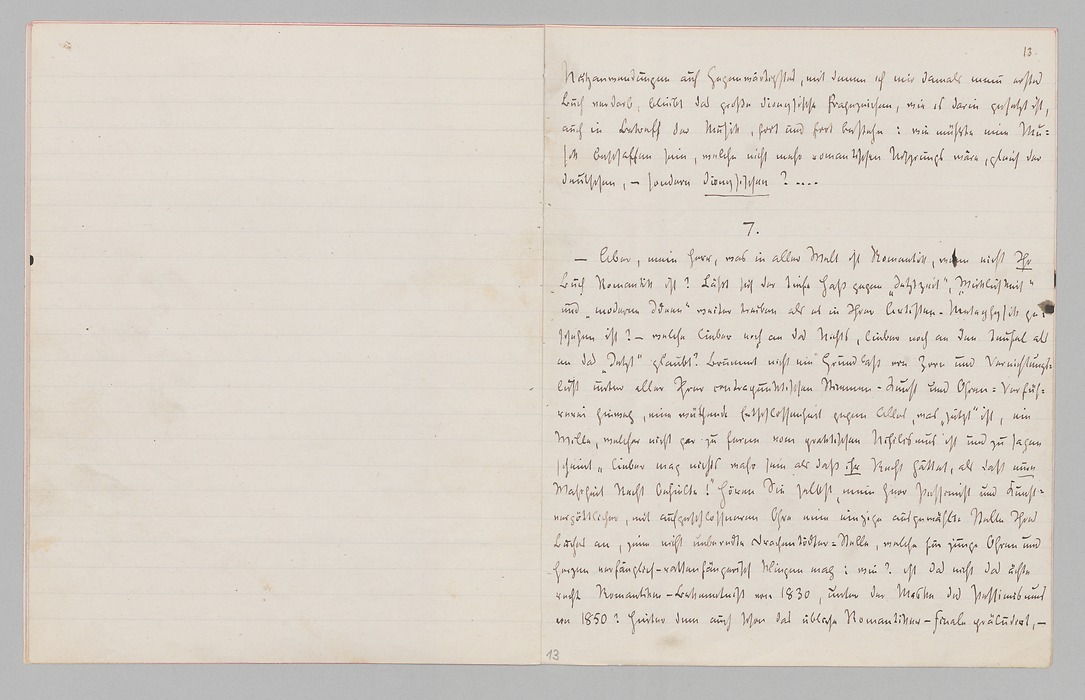 13.
Nutzanwendungen auf Gegenwärtigstes, mit denen ich mir damals mein erstes
Buch verdarb, bleibt das große dionysische Fragezeichen, wie es darin gesetzt ist,
auch in Betreff der Musik, fort und fort bestehn: wie müßte eine Mu=
sik beschaffen sein, welche nicht mehr romantischen Ursprungs wäre, gleich der
deutschen, – sondern dionysischen ? ....
7.
– Aber, mein Herr, was in aller Welt ist Romantik, wenn nicht Ihr
Buch Romantik ist? Läßt sich der tiefe Haß gegen „Jetztzeit“, „Wirklichkeit“
und „moderne Ideen“ weiter treiben als es in Ihrer Artisten-Metaphysik ge=
schehen ist? – welche lieber noch an das Nichts, lieber noch an den Teufel als
an das „Jetzt“ glaubt? Brummt nicht ein Grundbaß von Zorn und Vernichtungs=
lust unter aller Ihrer contrapunktischen Stimmen-Kunst und Ohren=Verfüh=
rerei hinweg, eine wüthende Entschlossenheit gegen Alles, was „jetzt“ ist, ein
Wille, welcher nicht gar zu ferne vom praktischen Nihilismus ist und zu sagen
scheint „lieber mag nichts wahr sein als daß ihr Recht hättet, als daß eure
Wahrheit Recht behielte!“ Hören Sie selbst, mein Herr Pessimist und Kunst=
vergöttlicher, mit aufgeschlossnerem Ohre eine einzige ausgewählte Stelle Ihres
Buches an, jene nicht unberedte Drachentödter=Stelle, welche für junge Ohren und
Herzen verfänglich-rattenfängerisch klingen mag: wie? ist das nicht das ächte
rechte Romantiker-Bekenntniß von 1830, unter der Maske des Pessimismus
von 1850? hinter dem auch schon das übliche Romantiker-Finale präludirt, –
13